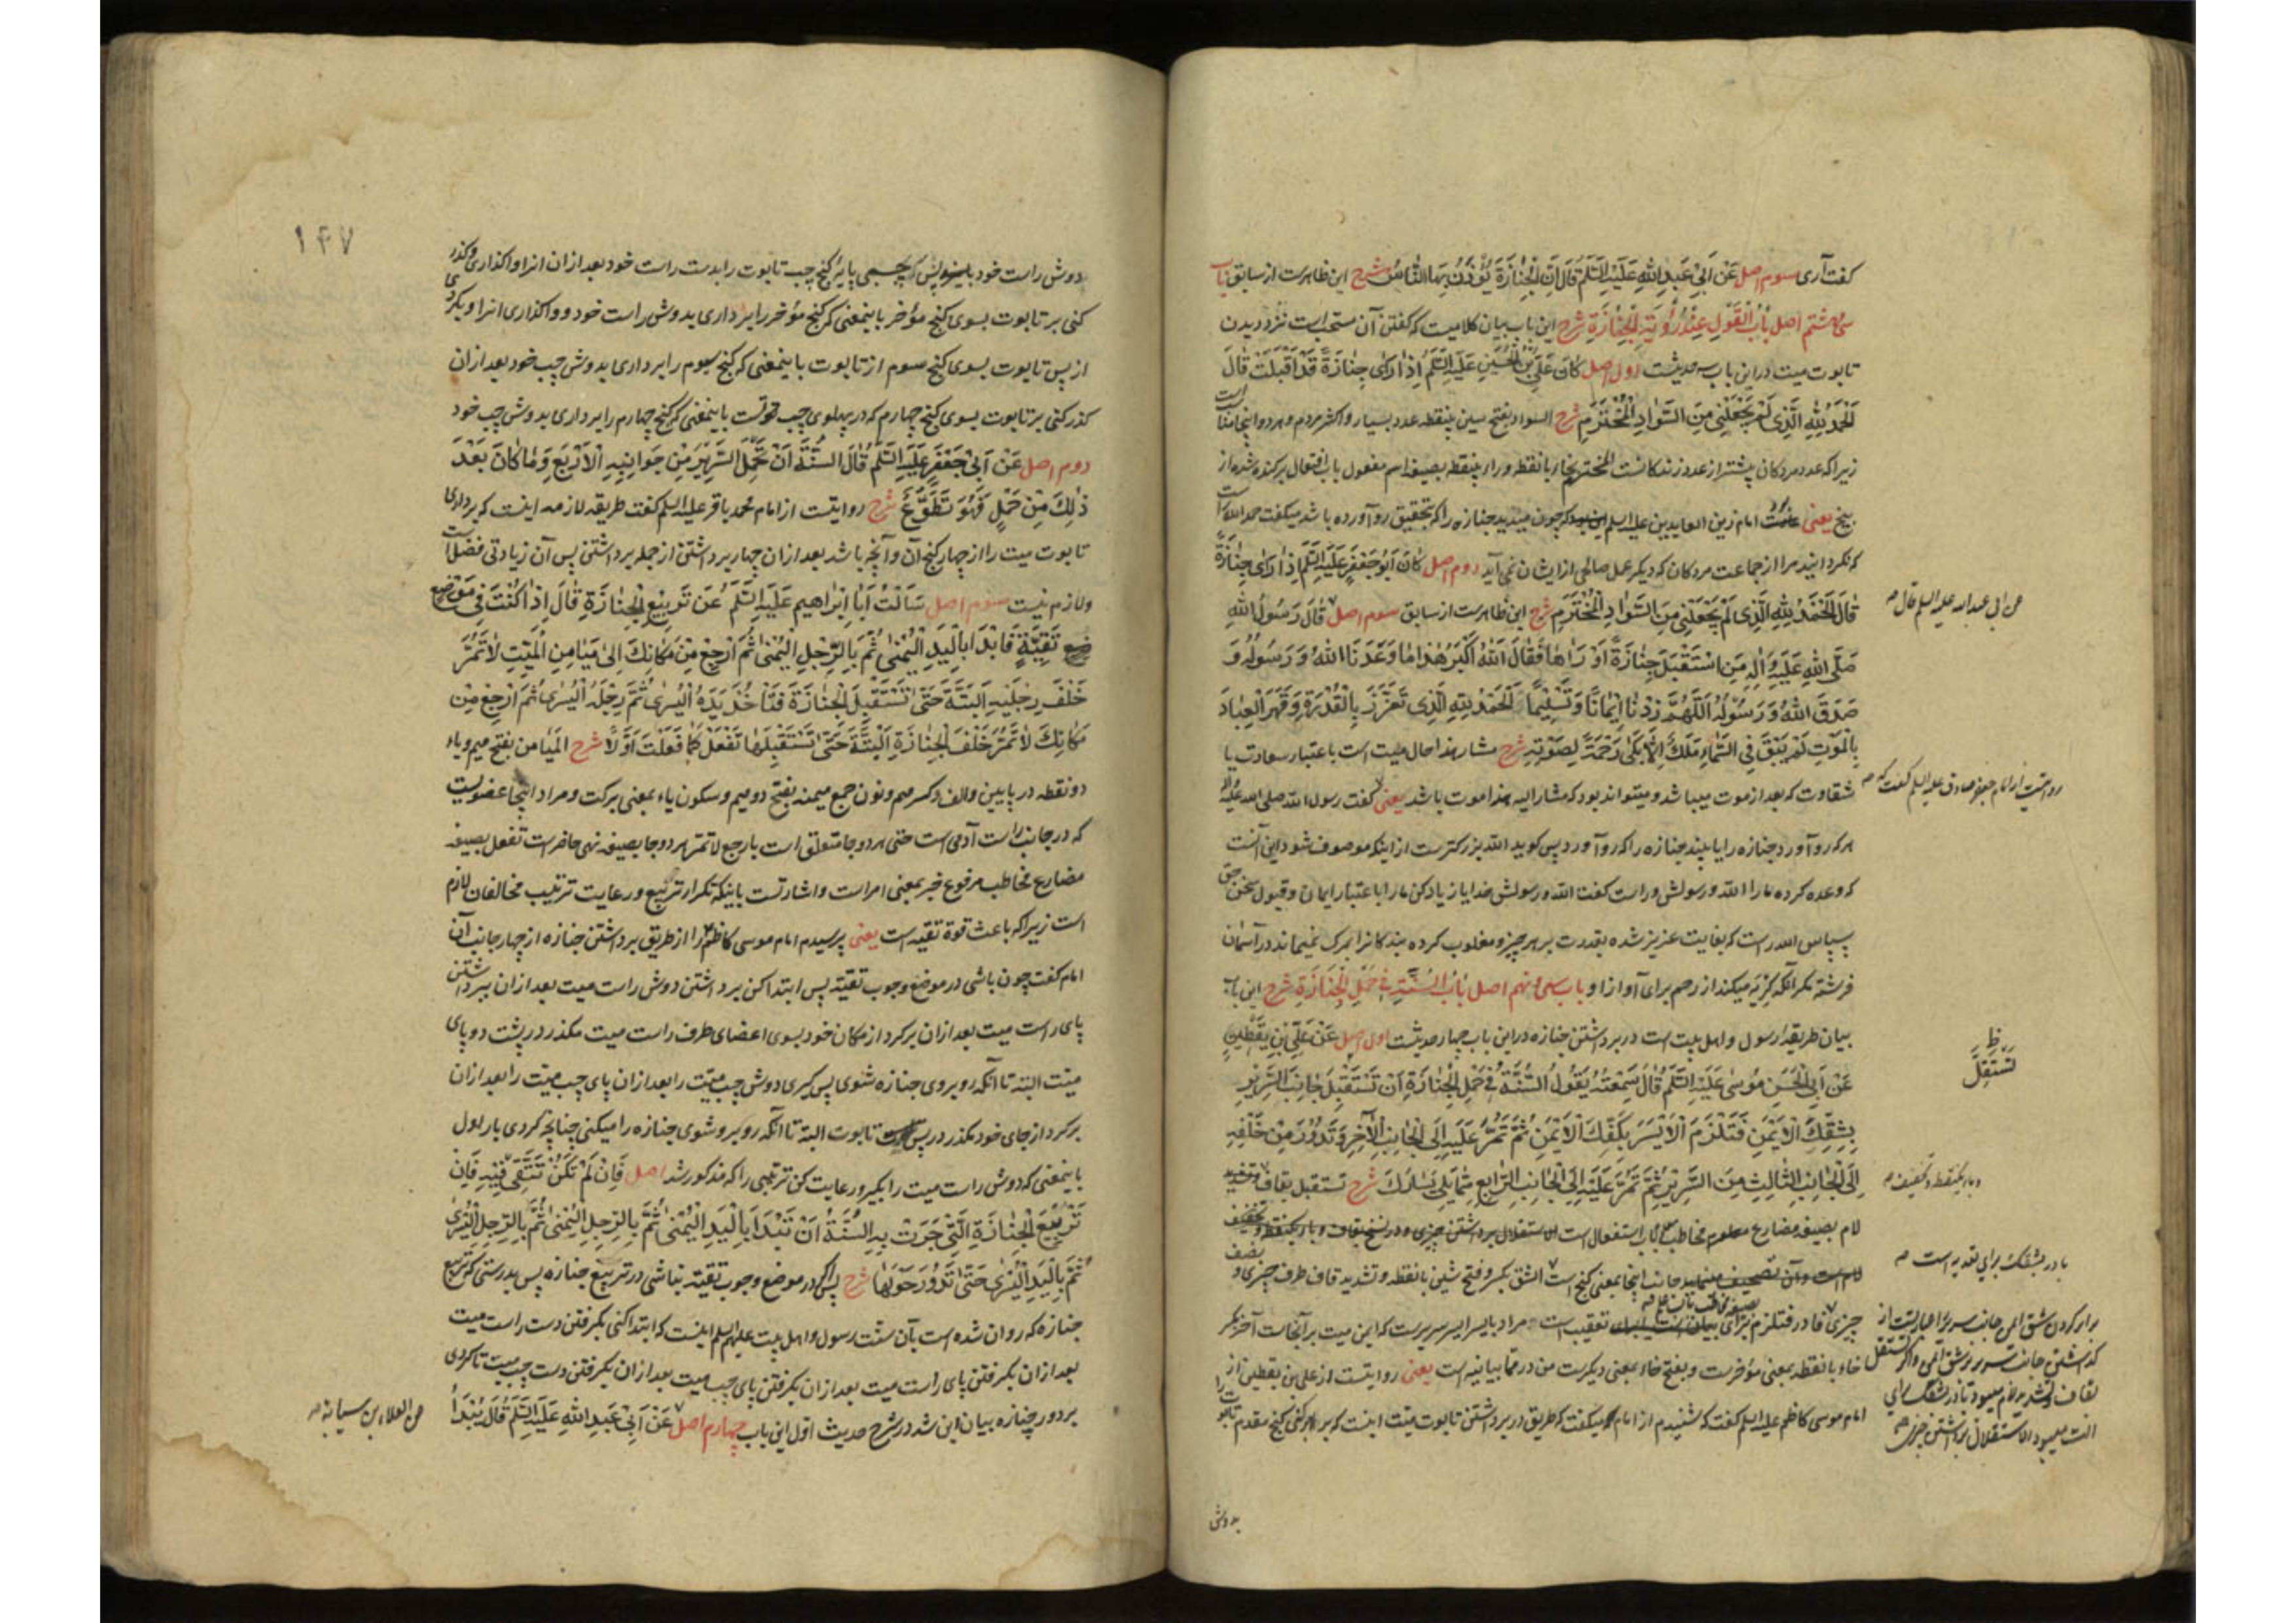 گفت آری سوم اصل عَنْ اَبِی عَبدِ اللهِ عَلَیْهِ السَّلَمُ قَالَ اِنَّ الْجِنَازَةَ یُؤْذَنُ بِهَا النَّاسُ شرح این ظاهرست از سابق باب
سی و هشتم اصل بَابُ الْقَوْلِ عِنْدَ رُؤْیَةِ الْجِنَازَةِ شرح این باب بیان کلامیست که گفتن آن مستحب است نزد دیدن
تابوت میت در این باب سه حدیثست اول اصل کَانَ عَلِیُّ بْنُ الْحُسَیْنِ عَلَیْهِ السَّلَمُ اِذَا رَاَی جِنَازَةً قَدْ اَقْبَلَتْ قَالَ
اَلْحَمْدُ لِلّهِ الَّذِی لَمْ یَجْعَلْنِی مِنَ السَّوَادِ الْمُخْتَرَمِ شرح السواد بفتح سین بینقطه عدد بسیار و اکثر مردم و هر دو اینجا مناسب است
زیرا که عدد مردکان بیشتر از عدد زندکانست المخترم بخاء با نقطه و راء بینقطه بصیغه اسم مفعول باب افتعال برکنده شده از
بیخ یعنی امام زین العابدین علیه السلم چون میدید جنازه را که بتحقیق رو آورده باشد میکفت حمد الله راست
که نکردانید مرا از جماعت مردکان که دیکر عمل صالحی از ایشان نمی آید دوم اصل کَانَ اَبُو جَعْفَرٍ عَلَیْهِ السَّلَمُ اِذَا رَاَی جِنَازَةً
قَالَ الْحَمْدُ لِلّهِ الَّذِی لَمْ یَجْعَلْنِی مِنَ السَّوَادِ الْمُخْتَرَمِ شرح این ظاهرست از سابق سوم اصل قَالَ رَسُولُ اللهِ
عن ابی عبدالله علیه السلم قال صح
صَلَّی اللهُ عَلَیْهِ وَاٰلِهِ مَنِ اسْتَقْبَلَ جِنَازَةً اَوْ رَاٰهَا فَقَالَ اَللهُ اَکْبَرُ هٰذَا مَا وَعَدَنَا اللهُ وَ رَسُولُهُ وَ
صَدَقَ اللهُ وَ رَسُولُهُ اَللّهُمَّ زِدْنَا اِیمَانًا وَ تَسْلِیمًا اَلْحَمْدُ لِلّهِ الَّذِی تَعَزَّزَ بِالْقُدْرَةِ وَ قَهَرَ الْعِبَادَ
بِالْمَوْتِ لَمْ یَبْقَ فِی السَّمَاءِ مَلَكٌ اِلَّا بَکٰی رَحْمَةً لِصَوْتِهِ شرح مشار بهذا حال میت است باعتبار سعادت یا
شقاوت که بعد از موت میباشد و میتواند بود که مشار الیه هذا موت باشد یعنی کفت رسول الله صلی الله علیه و آله
روایتست از امام جعفر صادق علیه السلم کفت که صح
هر که رو آورد جنازه را یا بیند جنازه را که رو آورد پس کوید الله بزرکترست از اینکه موصوف شود این آنست
که وعده کرده ما را الله و رسولش و راست کفت الله و رسولش خدایا زیاد کن ما را باعتبار ایمان و قبول سخن حق
سپاس الله راست که بغایت عزیز شده بقدرت بر هر چیز و مغلوب کرده بندکانرا بمرک نمیماند در آسمان
فرشته مکر آنکه کریه میکند از رحم برای آواز او باب سی و نهم اصل بَابُ السُّنَّةِ فِی حَمْلِ الْجِنَازَةِ شرح این باب
بیان طریقه رسول و اهل بیت است در برداشتن جنازه در این باب چهار حدیثست اول اصل عَنْ عَلِیِّ بْنِ یَقْطِینٍ
عَنْ اَبِی الْحَسَنِ مُوسٰی عَلَیْهِ السَّلَمُ قَالَ سَمِعْتُهُ یَقُولُ السُّنَّةُ فِی حَمْلِ الْجِنَازَةِ اَنْ تَسْتَقْبِلَ جَانِبَ السَّرِیرِ
ظ
تستقلّ
بِشِقِّكَ الْاَیْمَنِ فَتَلْزَمَ الْاَیْسَرَ بِکَفِّكَ الْاَیْمَنِ ثُمَّ تَمُرَّ عَلَیْهِ اِلَی الْجَانِبِ الْاٰخَرِ وَ تَدُورَ مِنْ خَلْفِهِ
اِلَی الْجَانِبِ الثَّالِثِ مِنَ السَّرِیرِ ثُمَّ تَمُرَّ عَلَیْهِ اِلَی الْجَانِبِ الرَّابِعِ مِمَّا یَلِی یَسَارَكَ شرح تستقبل بقاف
و باء یکنقطه و تخفیف صح
لام بصیغه مضارع معلوم مخاطب باب استفعال است
جانب اینجا بمعنی کنج است الشق بکسر و فتح شین با نقطه و تشدید قاف طرف چیزی و نصف
با در بشقک برای تعدیه است صح
چیزی فا در فتلزم برای تعقیب است مراد بایسر ایسر سریرست که ایمن میت بر آنجاست آخر بکسر
خاء با نقطه بمعنی مؤخرست و بفتح خاء بمعنی دیکرست من در مما بیانیه است یعنی روایتست از علی بن یقطین از
امام موسی کاظم علیه السلم کفت که شنیدم از امام میکفت که طریق در برداشتن تابوت میت اینست که برابر کنی کنج مقدم تابوت را
بدوش
۱۴۷
دوش راست خود پس بچسبی پایه کنج چپ تابوت را بدست راست خود بعد از ان انرا واکذاری و کذر
کنی بر تابوت بسوی کنج مؤخر باینمعنی که کنج مؤخر را برداری بدوش راست خود و واکذاری انرا و بکردی
از پس تابوت بسوی کنج سوم از تابوت باینمعنی که کنج سوم را برداری بدوش چپ خود بعد از ان
کذر کنی بر تابوت بسوی کنج چهارم که در پهلوی چپ تست باینمعنی که کنج چهارم را برداری بدوش چپ خود
دوم اصل عَنْ اَبِی جَعْفَرٍ عَلَیْهِ السَّلَمُ قَالَ السُّنَّةُ اَنْ تَحْمِلَ السَّرِیرَ مِنْ جَوَانِبِهِ الْاَرْبَعِ وَ مَا کَانَ بَعْدَ
ذٰلِكَ مِنْ حَمْلٍ فَهُوَ تَطَوُّعٌ شرح روایتست از امام محمد باقر علیه السلم کفت طریقه لازمه اینست که برداری
تابوت میت را از چهار کنج آن و آنچه باشد بعد از ان چهار برداشتن از جمله برداشتن پس آن زیادتی فضل است
و لازم نیست سوم اصل سَاَلْتُ اَبَا اِبْرَاهِیمَ عَلَیْهِ السَّلَمُ عَنْ تَرْبِیعِ الْجِنَازَةِ قَالَ اِذَا کُنْتَ فِی مَوْضِعِ
تَقِیَّةٍ فَابْدَا بِالْیَدِ الْیُمْنٰی ثُمَّ بِالرِّجْلِ الْیُمْنٰی ثُمَّ ارْجِعْ مِنْ مَکَانِكَ اِلٰی مَیَامِنِ الْمَیِّتِ لَا تَمُرَّ
خَلْفَ رِجْلَیْهِ الْبَتَّةَ حَتّٰی تَسْتَقْبِلَ الْجِنَازَةَ فَتَاْخُذَ یَدَهُ الْیُسْرٰی ثُمَّ رِجْلَهُ الْیُسْرٰی ثُمَّ ارْجِعْ مِنْ
مَکَانِكَ لَا تَمُرَّ خَلْفَ الْجِنَازَةِ الْبَتَّةَ حَتّٰی تَسْتَقْبِلَهَا تَفْعَلُ کَمَا فَعَلْتَ اَوَّلًا شرح المیامن بفتح میم و یاء
دو نقطه در پایین و الف و کسر میم و نون جمع میمنه بفتح دو میم و سکون یاء بمعنی برکت و مراد اینجا عضویست
که در جانب راست آدمی است حتی هر دو جا متعلق است بارجع لا تمر هر دو جا بصیغه نهی حاضر است تفعل بصیغه
مضارع مخاطب مرفوع خبر بمعنی امر است و اشارتست باینکه تکرار تربیع و رعایت ترتیب مخالفان لازم
است زیرا که باعث قوة تقیه است یعنی پرسیدم امام موسی کاظم را از طریق برداشتن جنازه از چهار جانب آن
امام کفت چون باشی در موضع وجوب تقیّه پس ابتدا کن برداشتن دوش راست میت بعد از ان ببرداشتن
پای راست میت بعد از ان برکرد از مکان خود بسوی اعضای طرف راست میت مکذر در پشت دو پای
میّت البته تا آنکه روبروی جنازه شوی پس کیری دوش چپ میّت را بعد از ان پای چپ میّت را بعد از ان
برکرد از جای خود مکذر در پس تابوت البته تا آنکه روبرو شوی جنازه را میکنی چنانچه کردی بار اول
باینمعنی که دوش راست میت را بکیر و رعایت کن ترتیبی را که مذکور شد اصل فَاِنْ لَمْ تَکُنْ تَتَّقِی فِیهِ فَاِنَّ
تَرْبِیعَ الْجِنَازَةِ الَّتِی جَرَتْ بِهِ السُّنَّةُ اَنْ تَبْدَا بِالْیَدِ الْیُمْنٰی ثُمَّ بِالرِّجْلِ الْیُمْنٰی ثُمَّ بِالرِّجْلِ الْیُسْرٰی
ثُمَّ بِالْیَدِ الْیُسْرٰی حَتّٰی تَدُورَ حَوْلَهَا شرح پس اکر در موضع وجوب تقیّه نباشی در تربیع جنازه پس بدرستی که تربیع
جنازه که روان شده است بآن سنّت رسول و اهل بیت علیهم السلم اینست که ابتدا کنی بکرفتن دست راست میت
بعد از ان بکرفتن پای راست میت بعد از ان بکرفتن پای چپ میت بعد از ان بکرفتن دست چپ میت تا کردی
بر دور جنازه بیان این شد در شرح حدیث اوّل این باب چهارم اصل عَنْ اَبِی عَبدِ اللهِ عَلَیْهِ السَّلَمُ قَالَ یُبْدَاُ
عن العلاء بن سیابة صح